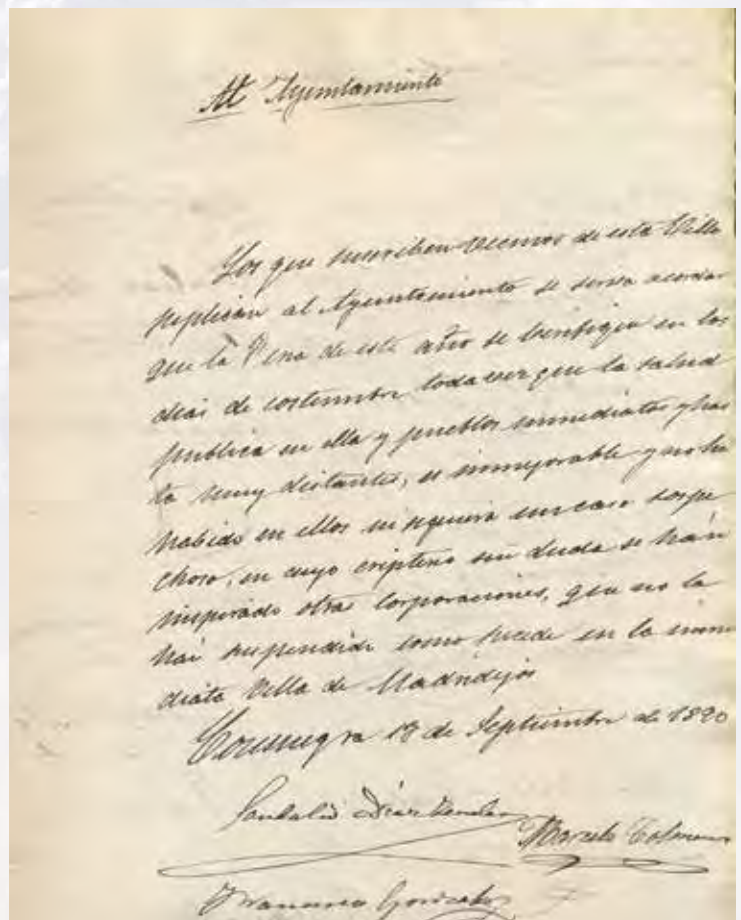 Al Ayuntamiento
Los que suscriben vecinos de esta Villa
suplican al Ayuntamiento se sirva acordar
que la Feria de este año se berifique en los
dias de costumbre toda vez que la salud
publica en ella y pueblos inmediatos y has
ta muy distantes, es inmejorable y no ha
habido en ellos ni siquiera un caso sospe
choso, en cuyo criterio sin duda se han
inspirado otras Corporaciones, que no la
han suspendido como sucede en la inme
diata Villa de Madridejos
Consuegra 18 de Septiembre de 1890
Sandalio Diaz
Marcelo
Francisco Gonzalez